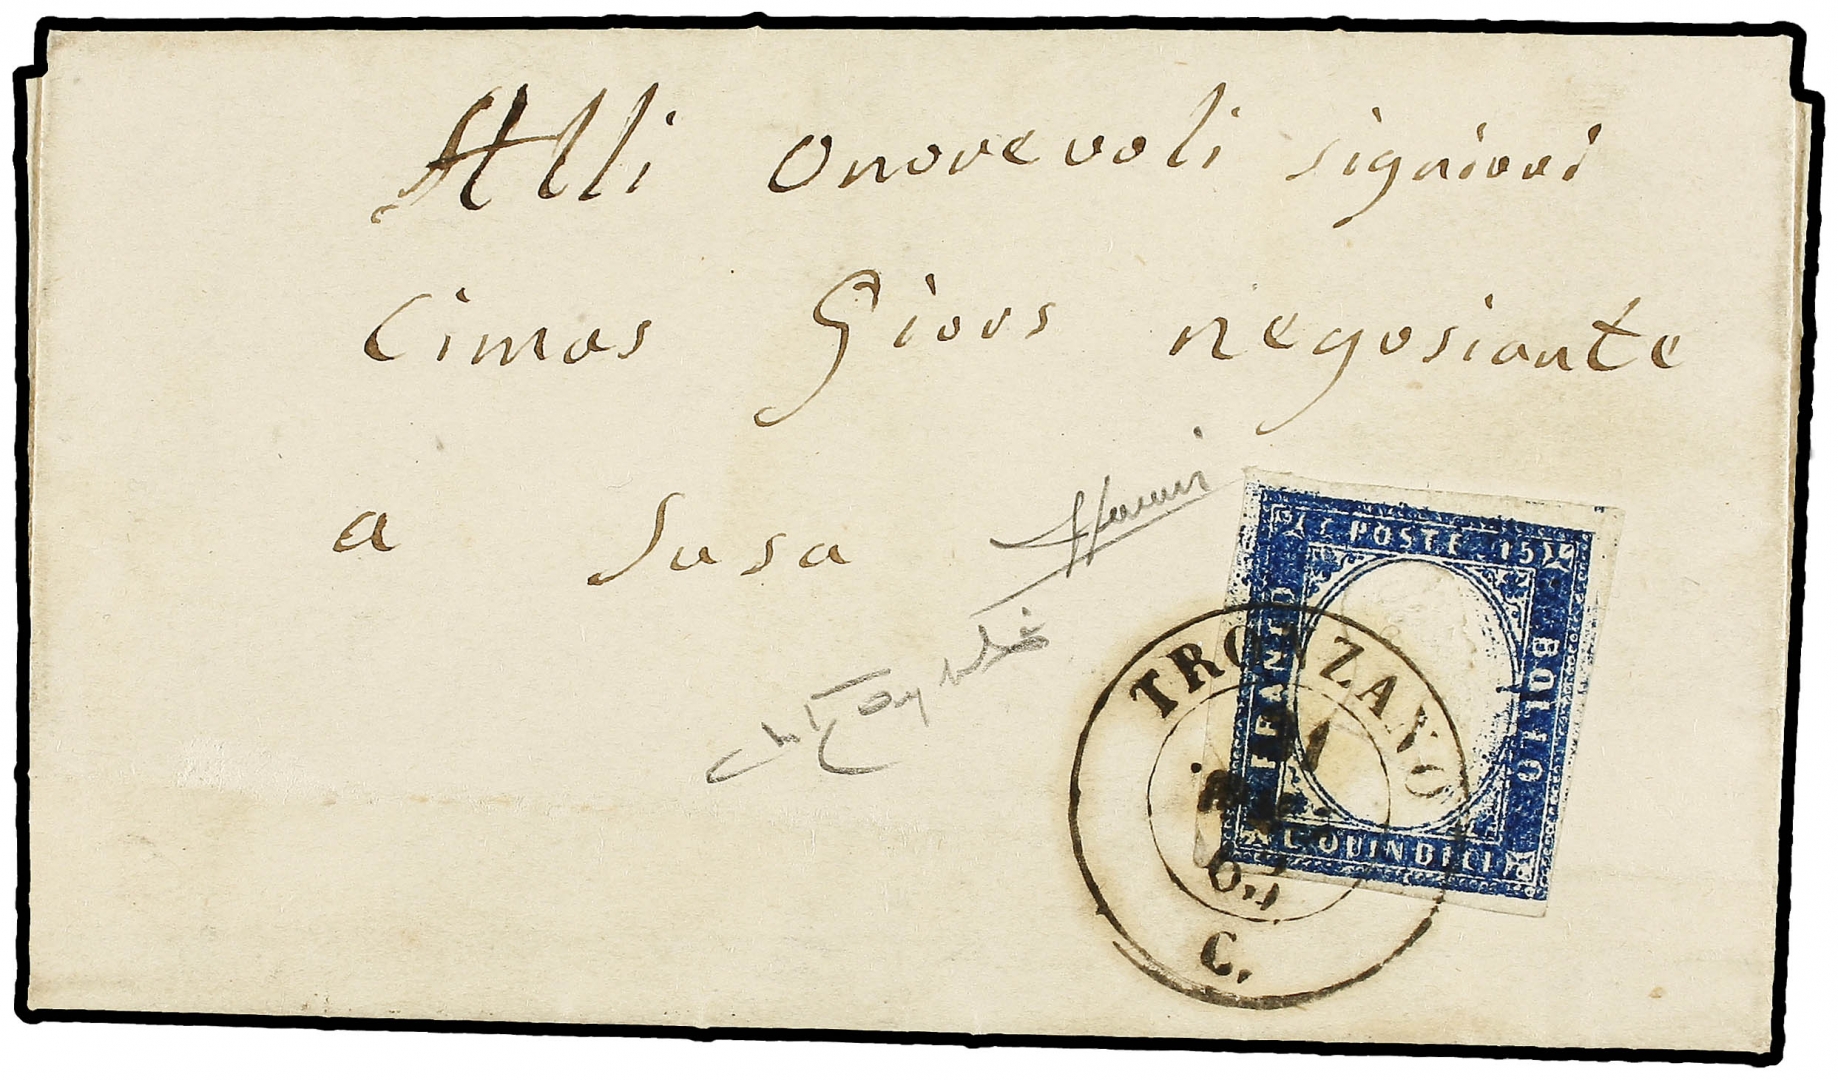 Alli onorevoli signiori
Cimas Giors negosiante
a Susa
C. POSTE 15
FRANCO
BOLLO
C. QUINDICI
TRONZANO
63
C.